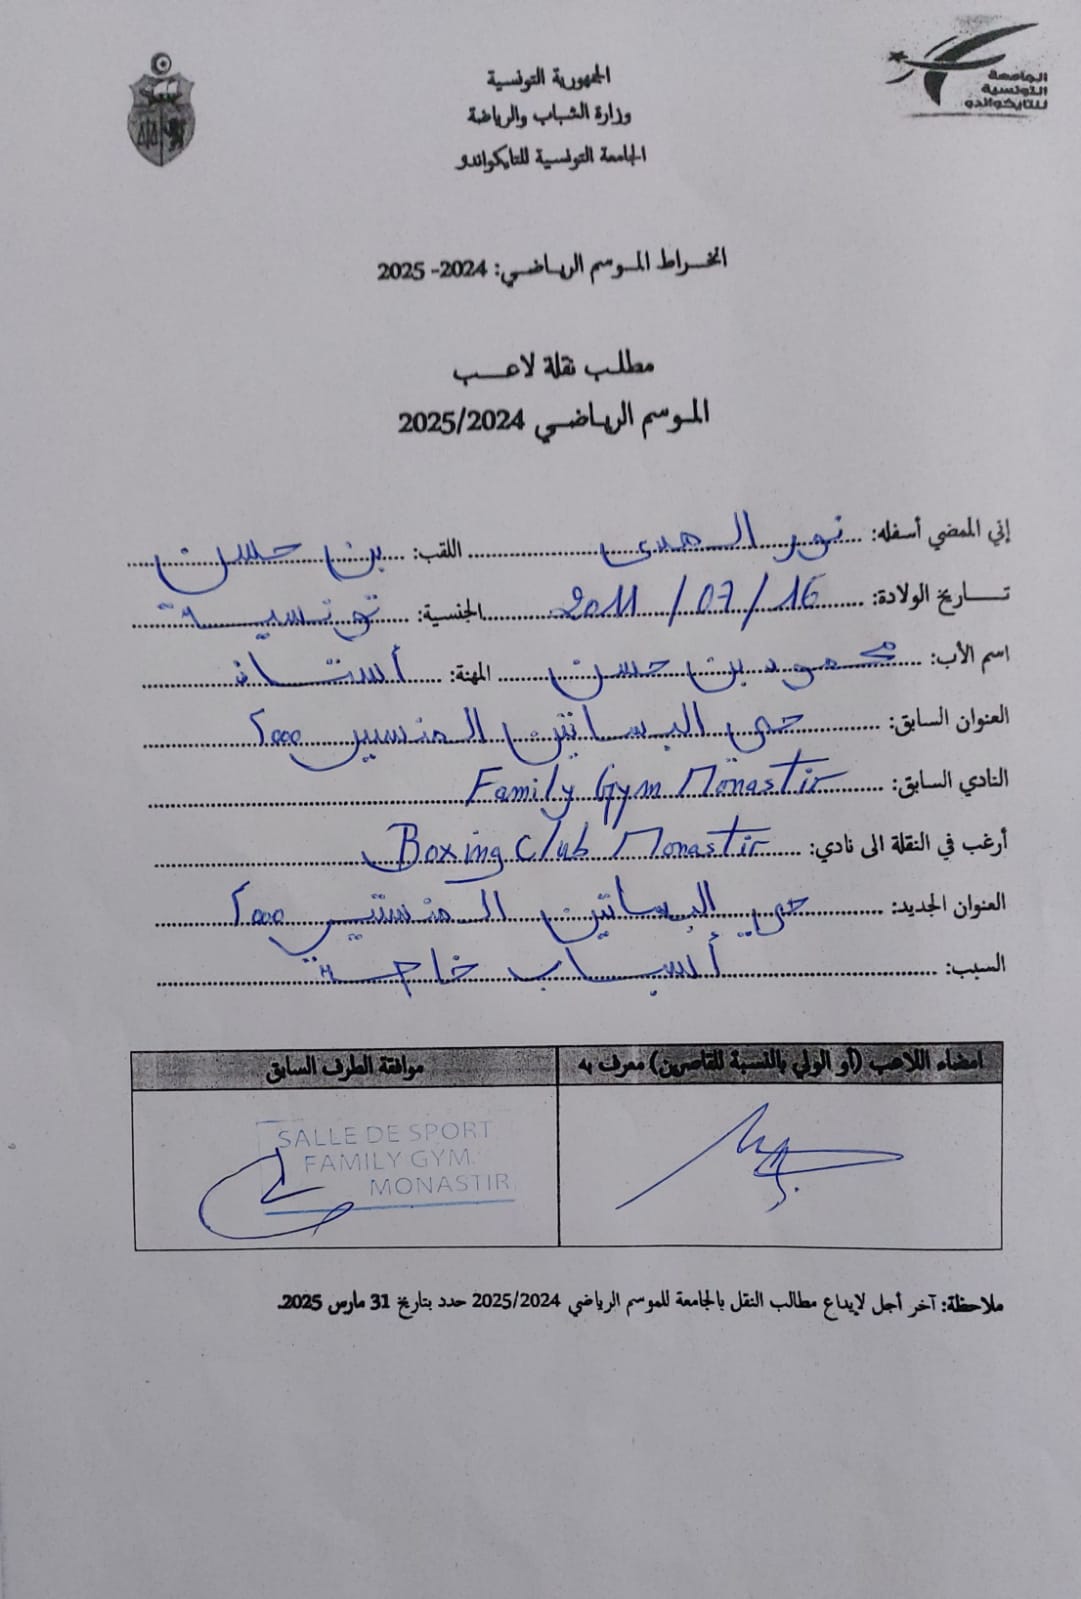 الجمهورية التونسية
وزارة الشباب والرياضة
الجامعة التونسية للتايكواندو
الجامعة
التونسية
للتايكواندو
انخراط الموسم الرياضي: 2024- 2025
مطلب نقلة لاعب
الموسم الرياضي 2025/2024
إني الممضي أسفله: نور الهدى اللقب: بن حسن
تاريخ الولادة: 16 / 07 / 2011 الجنسية: تونسية
اسم الأب: محمود بن حسن المهنة: أستاذ
العنوان السابق: حي البساتين المنستير 5000
النادي السابق: Family Gym Monastir
أرغب في النقلة الى نادي: Boxing Club Monastir
العنوان الجديد: حي البساتين المنستير 5000
السبب: أسباب خاصة
امضاء اللاعب (أو الولي بالنسبة للقاصرين) معرف به
موافقة الطرف السابق
SALLE DE SPORT
FAMILY GYM
MONASTIR
ملاحظة: آخر أجل لإيداع مطالب النقل بالجامعة للموسم الرياضي 2025/2024 حدد بتاريخ 31 مارس 2025.